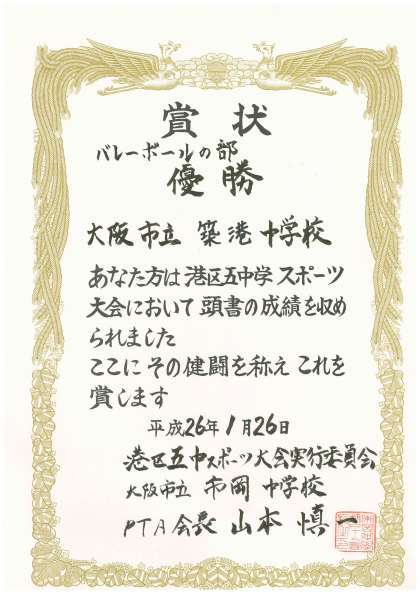 賞状
バレーボールの部
優勝
大阪市立 築港 中学校
あなた方は港区五中学スポーツ
大会において頭書の成績を収め
られました
ここにその健闘を称えこれを
賞します
平成26年1月26日
港区五中スポーツ大会実行委員会
大阪市立 市岡 中学校
PTA会長 山本 慎一